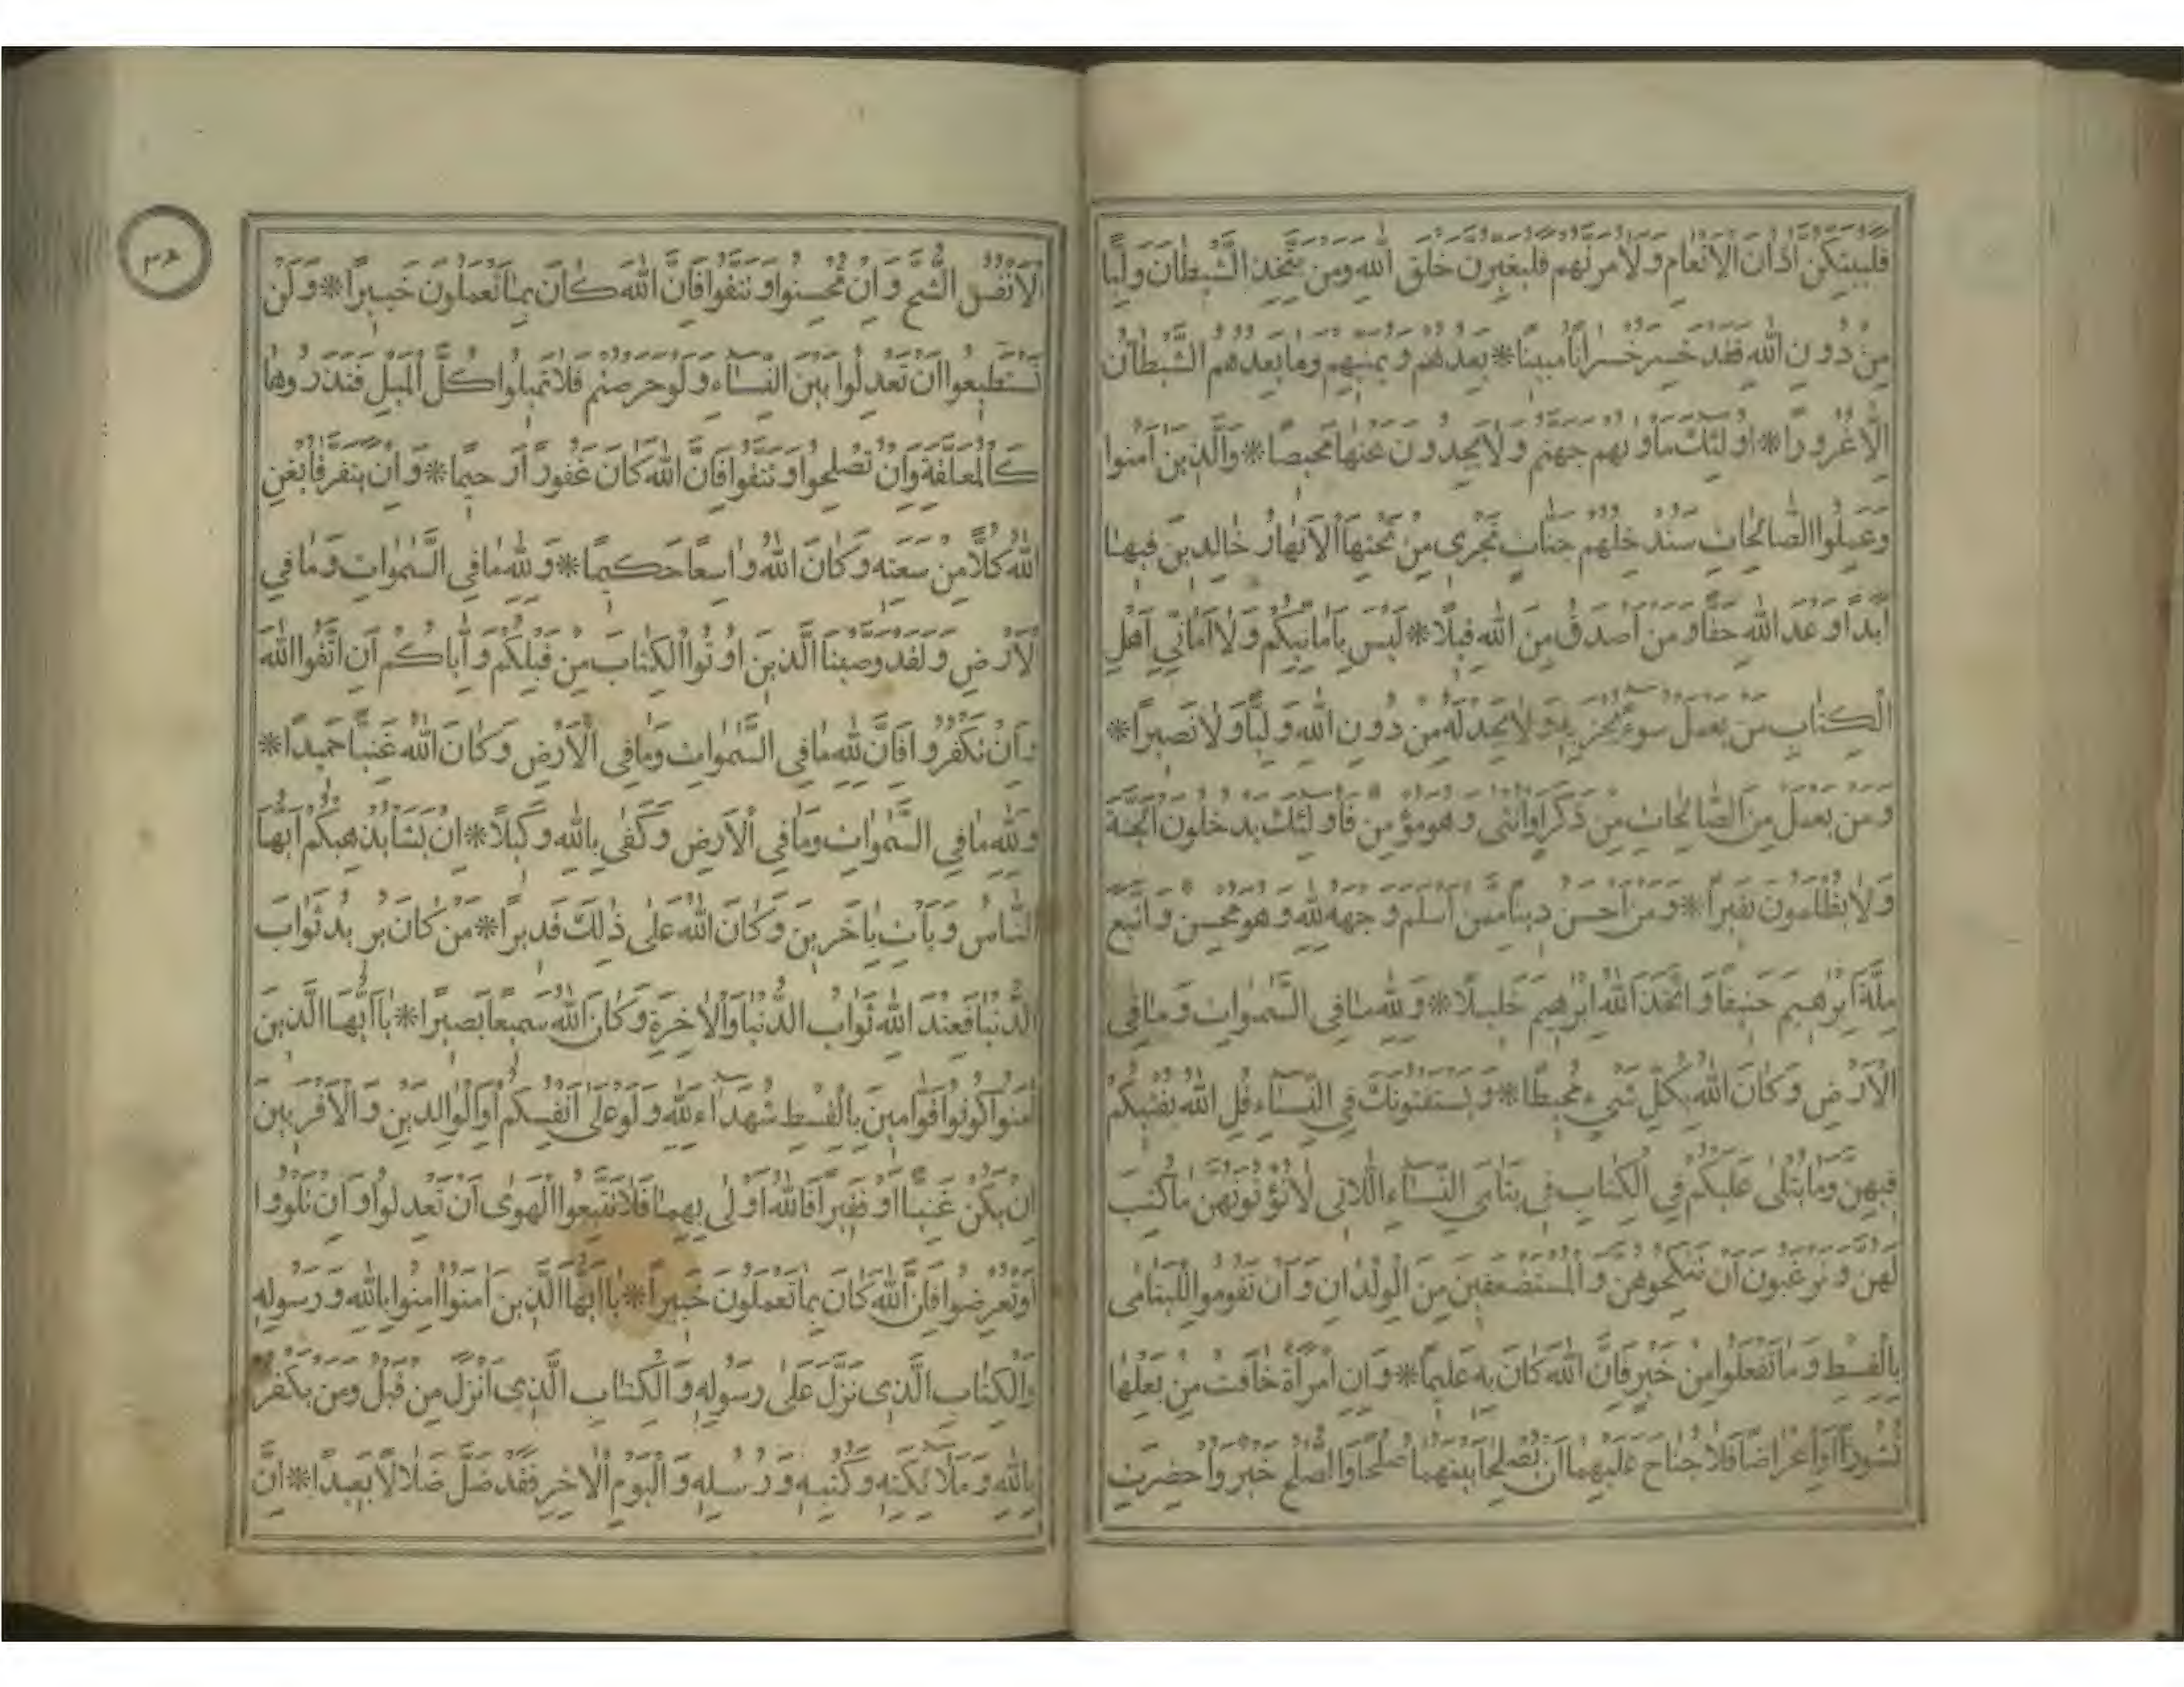 فليبتكن اذان الانعام ولامرنهم فليغيرن خلق الله ومن يتخذ الشيطان وليا
من دون الله فقد خسر خسرانا مبينا * يعدهم ويمنيهم وما يعدهم الشيطان
الا غرورا * اولئك ماويهم جهنم ولا يجدون عنها محيصا * والذين امنوا
وعملوا الصالحات سندخلهم جنات تجرى من تحتها الانهار خالدين فيها
ابدا وعد الله حقا ومن اصدق من الله قيلا * ليس بامانيكم ولا امانى اهل
الكتاب من يعمل سوءا يجز به ولا يجد له من دون الله وليا ولا نصيرا *
ومن يعمل من الصالحات من ذكر او انثى وهو مؤمن فاولئك يدخلون الجنة
ولا يظلمون نقيرا * ومن احسن دينا ممن اسلم وجهه لله وهو محسن واتبع
ملة ابرهيم حنيفا واتخذ الله ابرهيم خليلا * ولله ما فى السموات وما فى
الارض وكان الله بكل شىء محيطا * ويستفتونك فى النساء قل الله يفتيكم
فيهن وما يتلى عليكم فى الكتاب فى يتامى النساء اللاتى لا تؤتونهن ما كتب
لهن وترغبون ان تنكحوهن والمستضعفين من الولدان وان تقوموا لليتامى
بالقسط وما تفعلوا من خير فان الله كان به عليما * وان امراة خافت من بعلها
نشوزا او اعراضا فلا جناح عليهما ان يصلحا بينهما صلحا والصلح خير واحضرت
الانفس الشح وان تحسنوا وتتقوا فان الله كان بما تعملون خبيرا * ولن
تستطيعوا ان تعدلوا بين النساء ولو حرصتم فلا تميلوا كل الميل فتذروها
كالمعلقة وان تصلحوا وتتقوا فان الله كان غفورا رحيما * وان يتفرقا يغن
الله كلا من سعته وكان الله واسعا حكيما * ولله ما فى السموات وما فى
الارض ولقد وصينا الذين اوتوا الكتاب من قبلكم واياكم ان اتقوا الله
وان تكفروا فان لله ما فى السموات وما فى الارض وكان الله غنيا حميدا *
ولله ما فى السموات وما فى الارض وكفى بالله وكيلا * ان يشا يذهبكم ايها
الناس ويات باخرين وكان الله على ذلك قديرا * من كان يريد ثواب
الدنيا فعند الله ثواب الدنيا والاخرة وكان الله سميعا بصيرا * يا ايها الذين
امنوا كونوا قوامين بالقسط شهداء لله ولو على انفسكم او الوالدين والاقربين
ان يكن غنيا او فقيرا فالله اولى بهما فلا تتبعوا الهوى ان تعدلوا وان تلووا
او تعرضوا فان الله كان بما تعملون خبيرا * يا ايها الذين امنوا امنوا بالله ورسوله
والكتاب الذى نزل على رسوله والكتاب الذى انزل من قبل ومن يكفر
بالله وملائكته وكتبه ورسله واليوم الاخر فقد ضل ضلالا بعيدا * ان